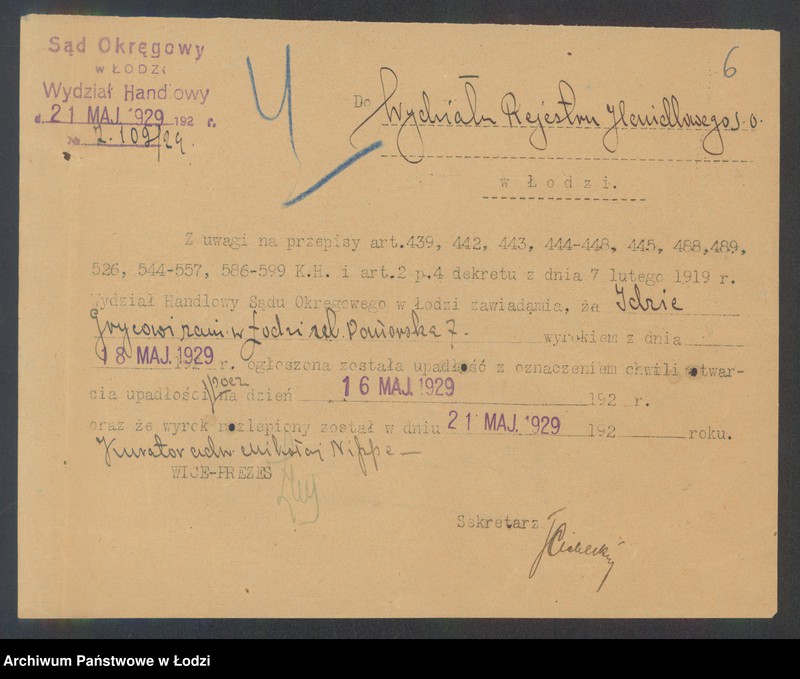 Sąd Okręgowy
w ŁODZI
Wydział Handlowy
d. 21 MAJ. 1929 192 r.
№ Z. 109/29.
6
Do Wydziału Rejestru Handlowego S. O.
w Łodzi.
Z uwagi na przepisy art.439, 442, 443, 444-448, 445, 488,489,
526, 544-557, 586-599 K.H. i art.2 p.4 dekretu z dnia 7 lutego 1919 r.
Wydział Handlowy Sądu Okręgowego w Łodzi zawiadamia, że Idzie
zam. w Łodzi Pomorska 7. wyrokiem z dnia
18 MAJ. 1929 r. ogłoszona została upadłość z oznaczeniem chwili otwar-
cia upadłości na dzień 16 MAJ. 1929 192 r.
oraz że wyrok rozlepiony został w dniu 21 MAJ. 1929 192 roku.
Kurator adw. Mikołaj Nippe —
WICE-PREZES
Sekretarz
Archiwum Państwowe w Łodzi